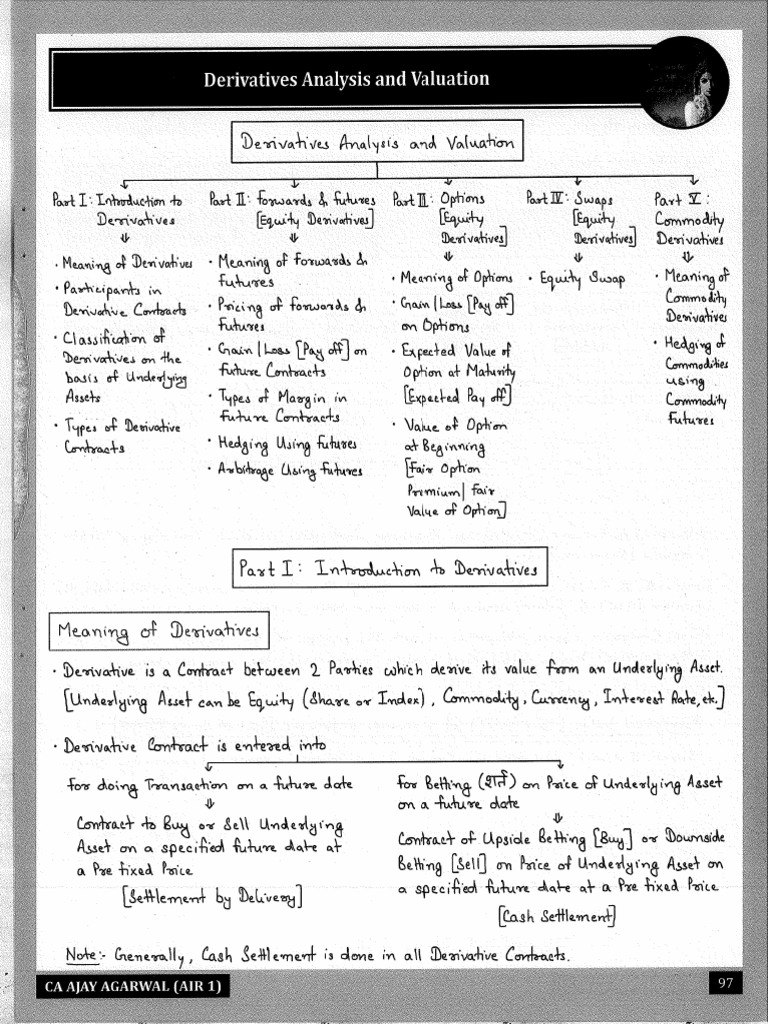 Derivatives Analysis and Valuation
Derivatives Analysis and Valuation
Part I: Introduction to
Derivatives
⇓
• Meaning of Derivatives
• Participants in
Derivative Contracts
• Classification of
Derivatives on the
basis of Underlying
Assets
• Types of Derivative
Contracts
Part II: Forwards & Futures
[Equity Derivatives]
⇓
• Meaning of Forwards &
Futures
• Pricing of Forwards &
Futures
• Gain|Loss [Pay off] on
Future Contracts
• Types of Margin in
Future Contracts
• Hedging Using Futures
• Arbitrage Using Futures
Part III: Options
[Equity
Derivatives]
⇓
• Meaning of Options
• Gain|Loss [Pay off]
on Options
• Expected Value of
Option at Maturity
[Expected Pay off]
• Value of Option
at Beginning
[Fair Option
Premium| Fair
Value of Option]
Part IV: Swaps
[Equity
Derivatives]
⇓
• Equity Swap
Part V:
Commodity
Derivatives
⇓
• Meaning of
Commodity
Derivatives
• Hedging of
Commodities
using
Commodity
Futures
Part I: Introduction to Derivatives
Meaning of Derivatives
• Derivative is a Contract between 2 Parties which derive its value from an Underlying Asset.
[Underlying Asset can be Equity (Share or Index), Commodity, Currency, Interest Rate, etc.]
• Derivative Contract is entered into
For doing Transaction on a future date
⇓
Contract to Buy or Sell Underlying
Asset on a specified future date at
a Pre fixed Price
[Settlement by Delivery]
For Betting (शर्त) on Price of Underlying Asset
on a future date
⇓
Contract of Upside Betting [Buy] or Downside
Betting [Sell] on Price of Underlying Asset on
a specified future date at a Pre fixed Price
[Cash Settlement]
Note:- Generally, Cash Settlement is done in all Derivative Contracts.
CA AJAY AGARWAL (AIR 1)
97